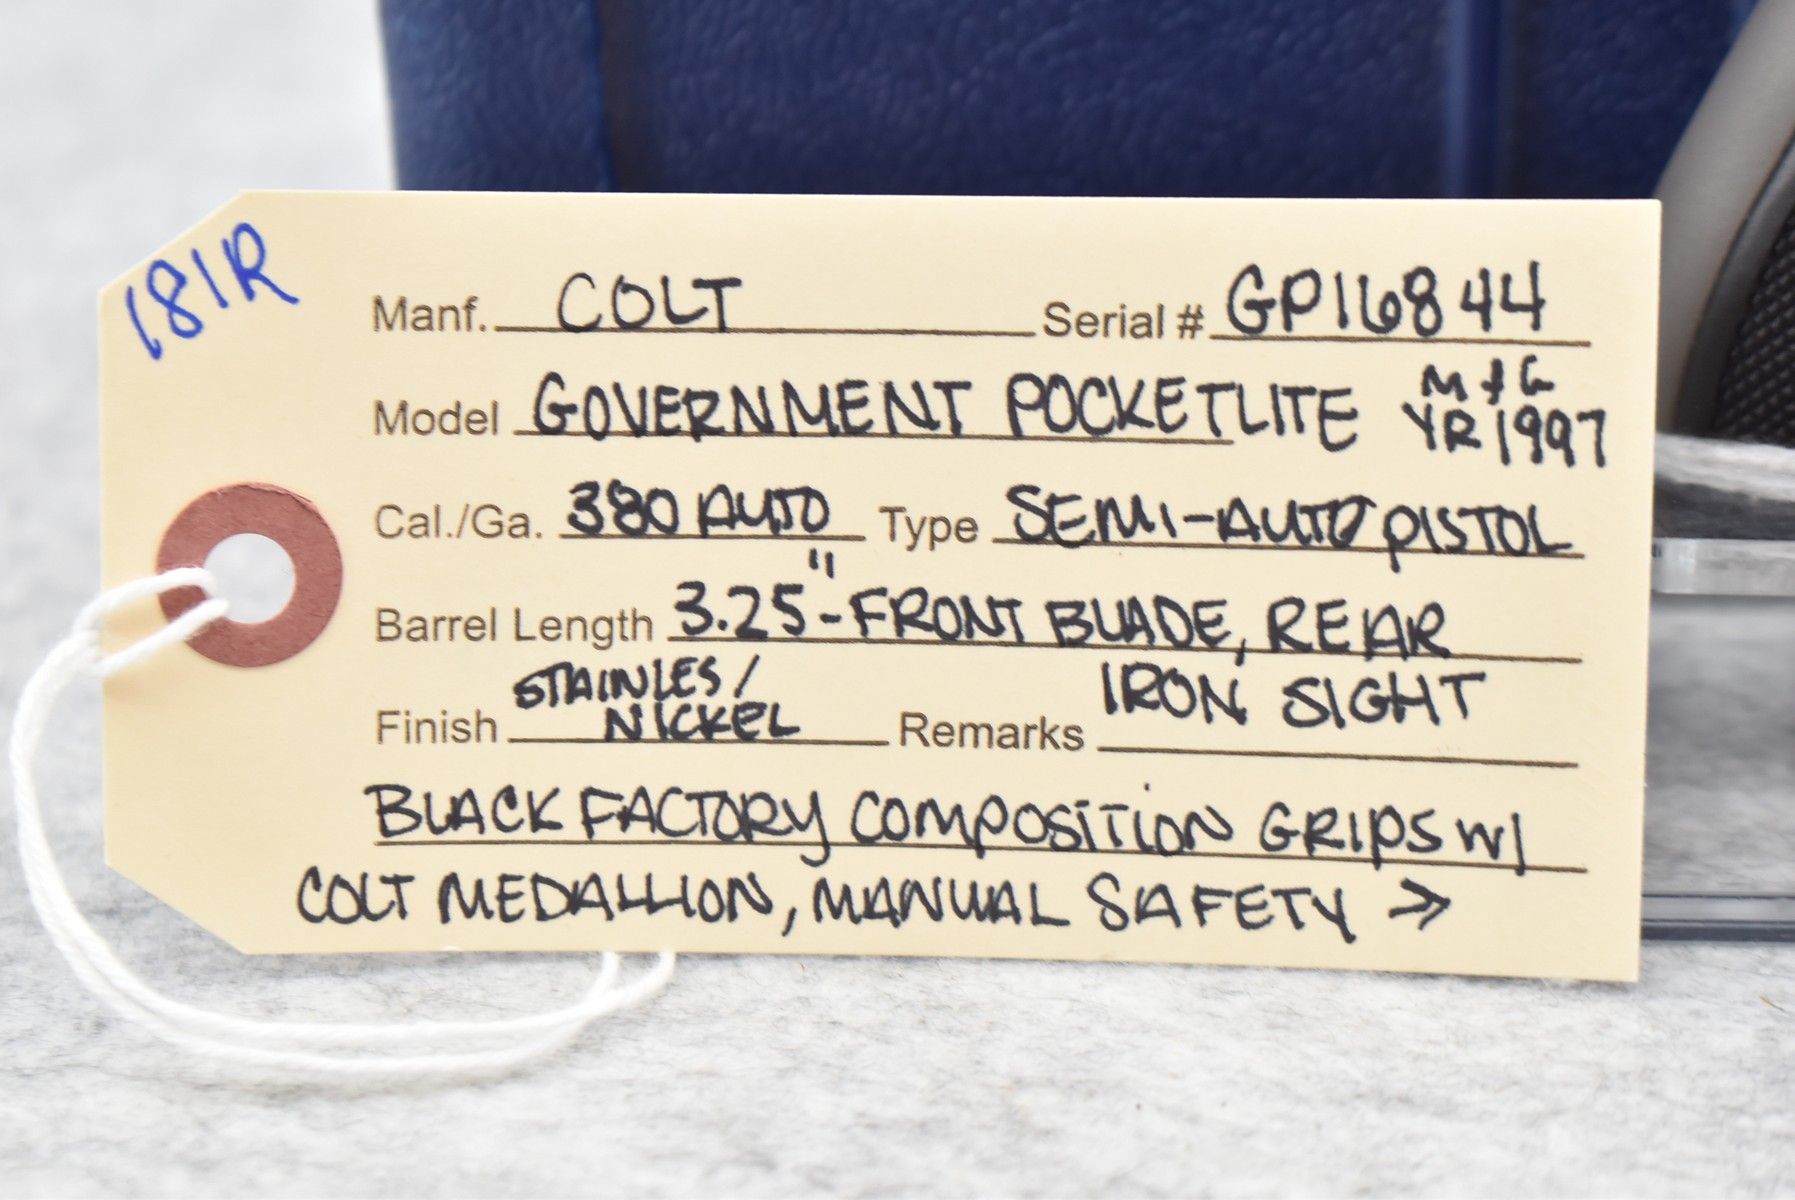 181R
Manf. COLT Serial # GP16844
Model GOVERNMENT POCKETLITE MFG YR 1997
Cal./Ga. 380 AUTO Type SEMI-AUTO PISTOL
Barrel Length 3.25"-FRONT BLADE, REAR
Finish STAINLES/ NICKEL Remarks IRON SIGHT
BLACK FACTORY COMPOSITION GRIPS W/
COLT MEDALLION, MANUAL SAFETY →